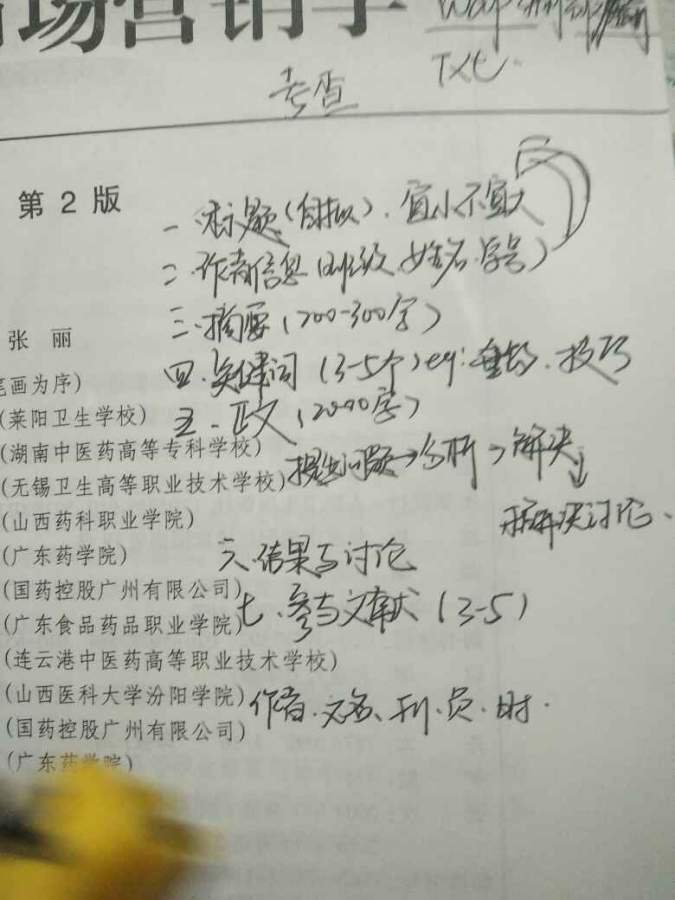 市场营销学
考查
TXt.
第 2 版
一、标题(自拟).宜小不宜大
二.作者信息(班级.姓名.学号)
三.摘要(200-300字)
张 丽
四.关键词(3-5个)eg: .技巧
笔画为序)
五.正文(2000字)
(莱阳卫生学校)
(湖南中医药高等专科学校)
提出问题→分析→解决
(无锡卫生高等职业技术学校)
(山西药科职业学院)
解决讨论.
(广东药学院)
六.结果与讨论
(国药控股广州有限公司)
七.参考文献(3-5)
(广东食品药品职业学院)
(连云港中医药高等职业技术学校)
(山西医科大学汾阳学院)
作者.文名.刊.页.时.
(国药控股广州有限公司)
(广东药学院)